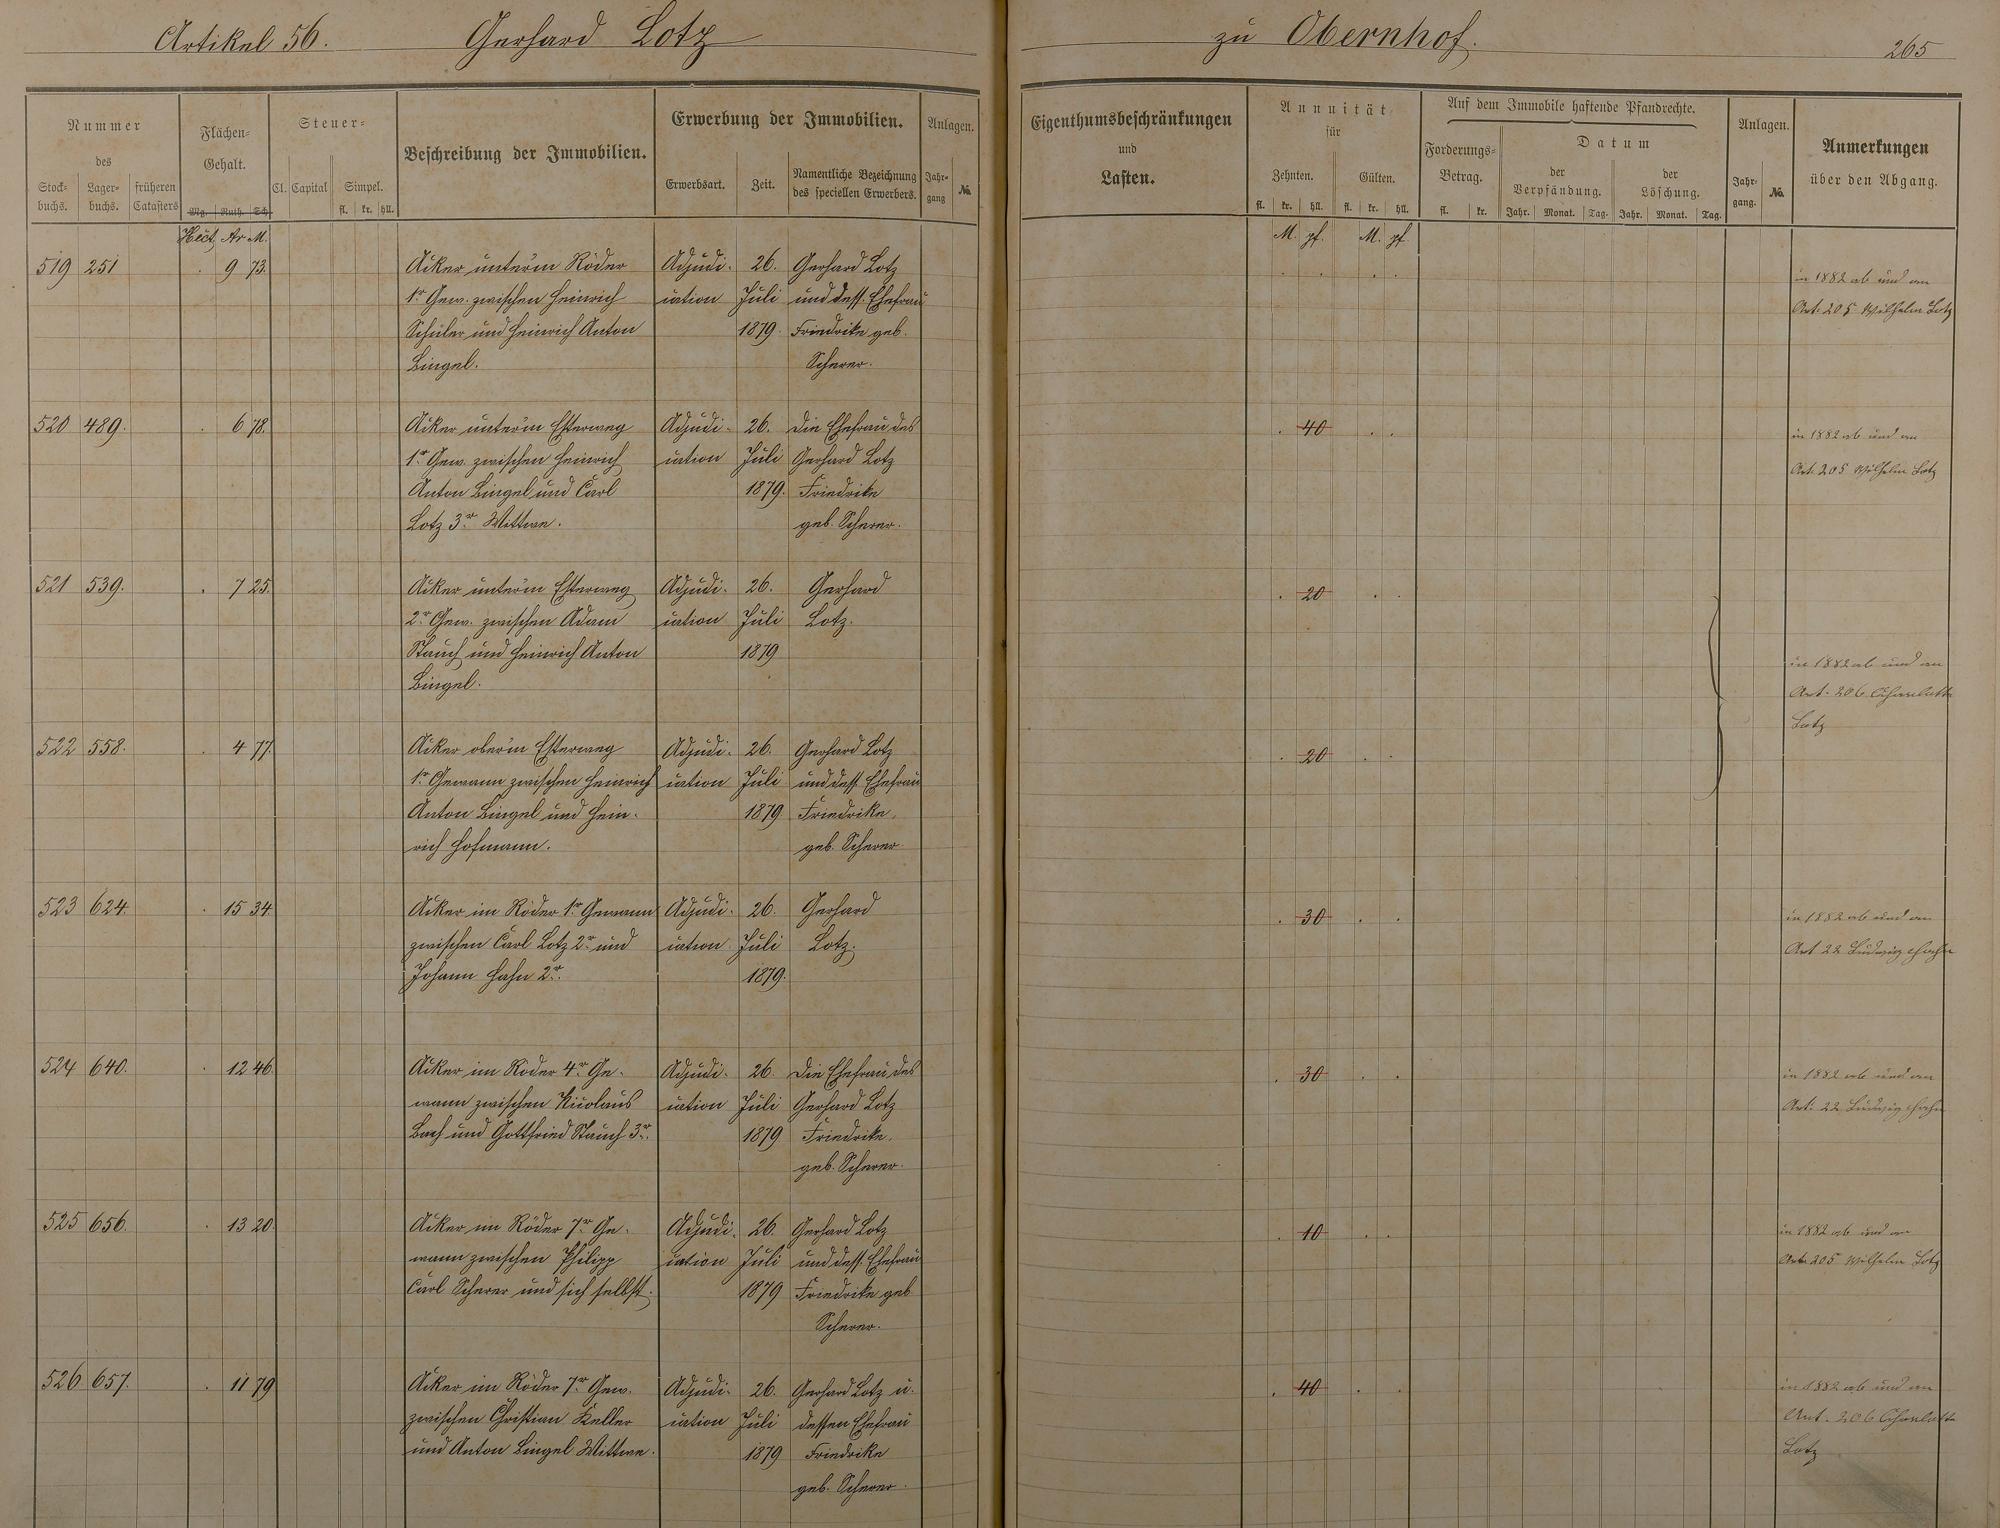 Artikel 56. Gerhard Lotz zu Obernhof. 265
Nummer des
Stock-buchs. Lager-buchs. früheren Catasters
Flächen-Gehalt.
Mg. Ruth. Sch.
Steuer-
Cl. Capital Simpel.
fl. kr. hll.
Beschreibung der Immobilien.
Erwerbung der Immobilien.
Erwerbsart. Zeit. Namentliche Bezeichnung des speciellen Erwerbers.
Anlagen.
Jahr-gang No.
Eigenthumsbeschränkungen
und
Lasten.
Annuität
für
Zehnten. Gülten.
fl. kr. hll. fl. kr. hll.
Auf dem Immobile haftende Pfandrechte.
Forderungs-Betrag.
fl. kr.
Datum
der Verpfändung. der Löschung.
Jahr. Monat. Tag. Jahr. Monat. Tag.
Anlagen.
Jahr-gang. No.
Anmerkungen
über den Abgang.
Hect Ar M. M. pf. M. pf.
519 251 9 73. Acker unterm Röder Adjudi- 26. Gerhard Lotz in 1882 ab und an
1r Gew. zwischen Heinrich cation Juli und dess. Ehefrau Art. 205 Wilhelm Lotz
Schüler und Heinrich Anton 1879. Friedrike geb.
Bingel. Scherer.
520 489. 6 78. Acker unterm Esterweg Adjudi- 26. die Ehefrau des 40 in 1882 ab und an
1r Gew. zwischen Heinrich cation Juli Gerhard Lotz Art. 205 Wilhelm Lotz
Anton Bingel und Carl 1879. Friedrike
Lotz 3r Wittwe. geb. Scherer.
521 539. 7 25. Acker unterm Esterweg Adjudi- 26. Gerhard 20
2r Gew. zwischen Adam cation Juli Lotz.
Stauch und Heinrich Anton 1879 in 1882 ab und an
Bingel. Art. 206 Charlotte
Lotz
522 558. 4 77. Acker oberm Esterweg Adjudi- 26. Gerhard Lotz 20
1r Gewann zwischen Heinrich cation Juli und dess. Ehefrau
Anton Bingel und Hein- 1879 Friedrike,
rich Hofmann. geb. Scherer
523 624. 15 34. Acker im Röder 1r Gewann Adjudi- 26. Gerhard 30 in 1882 ab und an
zwischen Carl Lotz 2r und cation Juli Lotz. Art 22 Ludwig Hahn
Johann Hahn 2r. 1879.
524 640. 12 46. Acker im Röder 4r Ge- Adjudi- 26. die Ehefrau des 30 in 1882 ab und an
wann zwischen Nicolaus cation Juli Gerhard Lotz Art. 22 Ludwig Hahn
Bach und Gottfried Stauch 3r. 1879 Friedrike,
geb. Scherer.
525 656. 13 20. Acker im Röder 7r Ge- Adjudi- 26. Gerhard Lotz 10 in 1882 ab und an
wann zwischen Philipp cation Juli und dess. Ehefrau Art 205 Wilhelm Lotz
Carl Scherer und sich selbst. 1879 Friedrike geb
Scherer.
526 657. 11 79 Acker im Röder 7r Gew. Adjudi- 26. Gerhard Lotz u. 40 in 1882 ab und an
zwischen Christian Keller cation Juli dessen Ehefrau Art. 206 Charlotte
und Anton Bingel Wittwe. 1879 Friedrike Lotz
geb. Scherer.